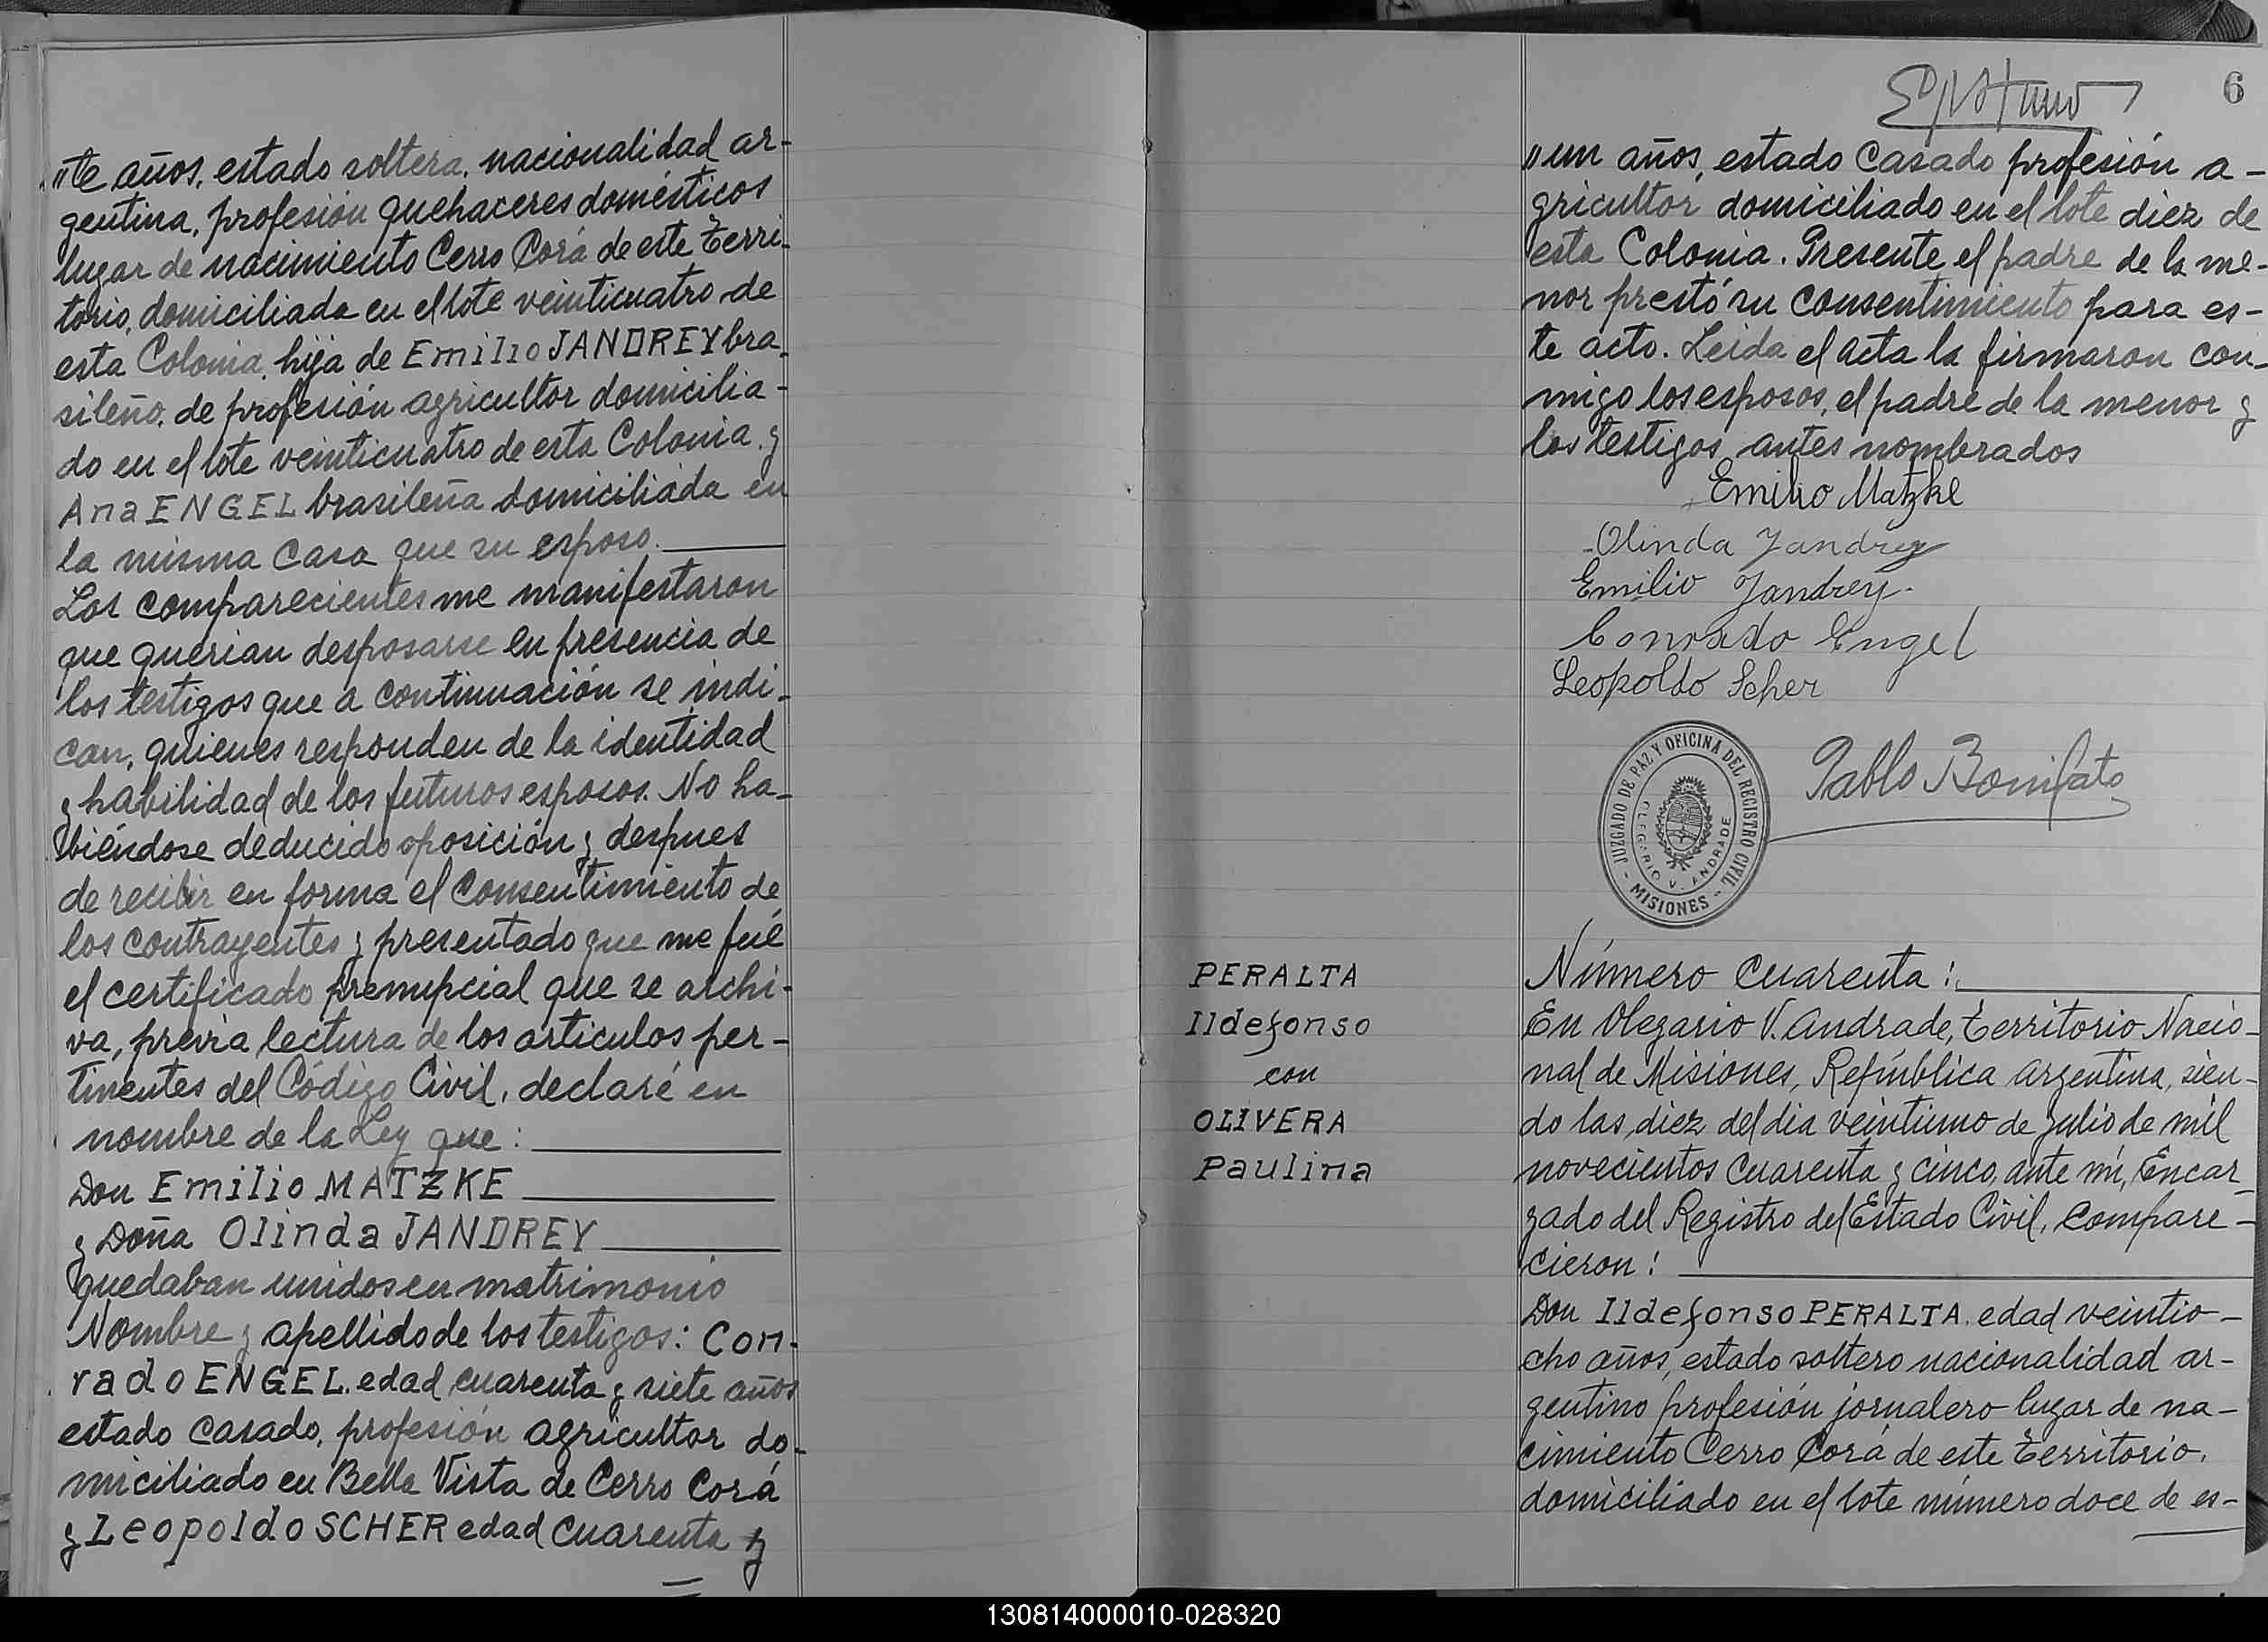 "te años, estado soltera, nacionalidad ar-
gentina, profesión quehaceres domésticos
lugar de nacimiento Cerro Corá de este Terri-
torio, domiciliada en el lote veinticuatro de
esta Colonia, hija de Emilio JANDREY bra-
sileño, de profesión agricultor domicilia-
do en el lote veinticuatro de esta Colonia y
Ana ENGEL brasileña domiciliada en
la misma casa que su esposo.
Los comparecientes me manifestaron
que querian desposarse en presencia de
los testigos que a continuación se indi-
can, quienes responden de la identidad
y habilidad de los futuros esposos. No ha-
biéndose deducido oposición y despues
de recibir en forma el consentimiento de
los contrayentes y presentado que me fué
el certificado prenupcial que se archi-
va, previa lectura de los articulos per-
tinentes del Código Civil, declaré en
nombre de la Ley que:
Don Emilio MATZKE
y Doña Olinda JANDREY
quedaban unidos en matrimonio
Nombre y apellido de los testigos: Con-
rado ENGEL, edad cuarenta y siete años
estado casado, profesión agricultor do-
miciliado en Bella Vista de Cerro Corá
y Leopoldo SCHER edad cuarenta y
6
"un años, estado casado profesión a-
gricultor domiciliado en el lote diez de
esta Colonia. Presente el padre de la me-
nor prestó su consentimiento para es-
te acto. Leida el acta la firmaron con-
migo los esposos, el padre de la menor y
los testigos antes nombrados
Emilio Matzke
Olinda Jandrey
Emilio Jandrey.
Conrado Engel
Leopoldo Scher
JUZGADO DE PAZ Y OFICINA DEL REGISTRO CIVIL
OLEGARIO V. ANDRADE
- MISIONES -
Pablo Bonifato
PERALTA
Ildefonso
con
OLIVERA
Paulina
Número cuarenta:
En Olegario V. Andrade, Territorio Nacio-
nal de Misiones, República Argentina, sien-
do las diez del dia veintiuno de Julio de mil
novecientos cuarenta y cinco, ante mi, Encar-
gado del Registro del Estado Civil, compare-
cieron:
Don Ildefonso PERALTA, edad veintio-
cho años, estado soltero nacionalidad ar-
gentino profesión jornalero lugar de na-
cimiento Cerro Corá de este Territorio,
domiciliado en el lote número doce de es-
130814000010-028320